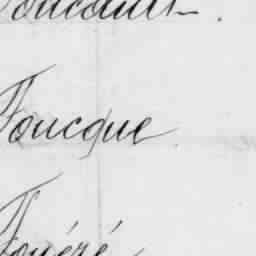 Foucault.
Foucque
Fouéré